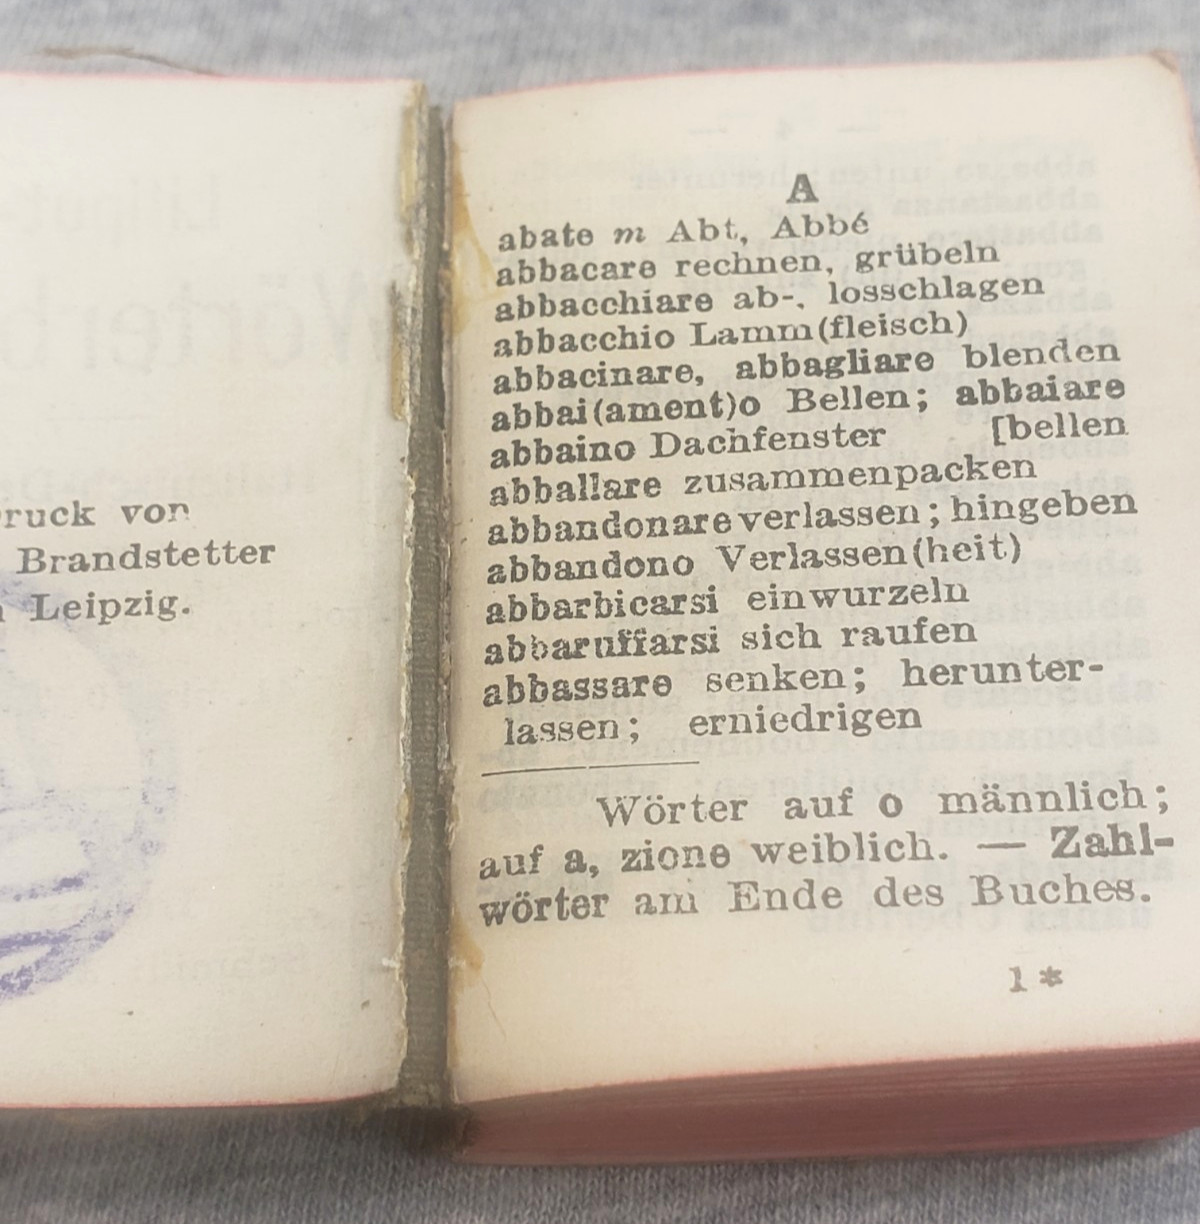 ruck von
Brandstetter
Leipzig.
A
abate m Abt, Abbé
abbacare rechnen, grübeln
abbacchiare ab-, losschlagen
abbacchio Lamm(fleisch)
abbacinare, abbagliare blenden
abbai(ament)o Bellen; abbaiare
abbaino Dachfenster [bellen
abballare zusammenpacken
abbandonare verlassen; hingeben
abbandono Verlassen(heit)
abbarbicarsi einwurzeln
abbaruffarsi sich raufen
abbassare senken; herunter-
lassen; erniedrigen
Wörter auf o männlich;
auf a, zione weiblich. — Zahl-
wörter am Ende des Buches.
1*